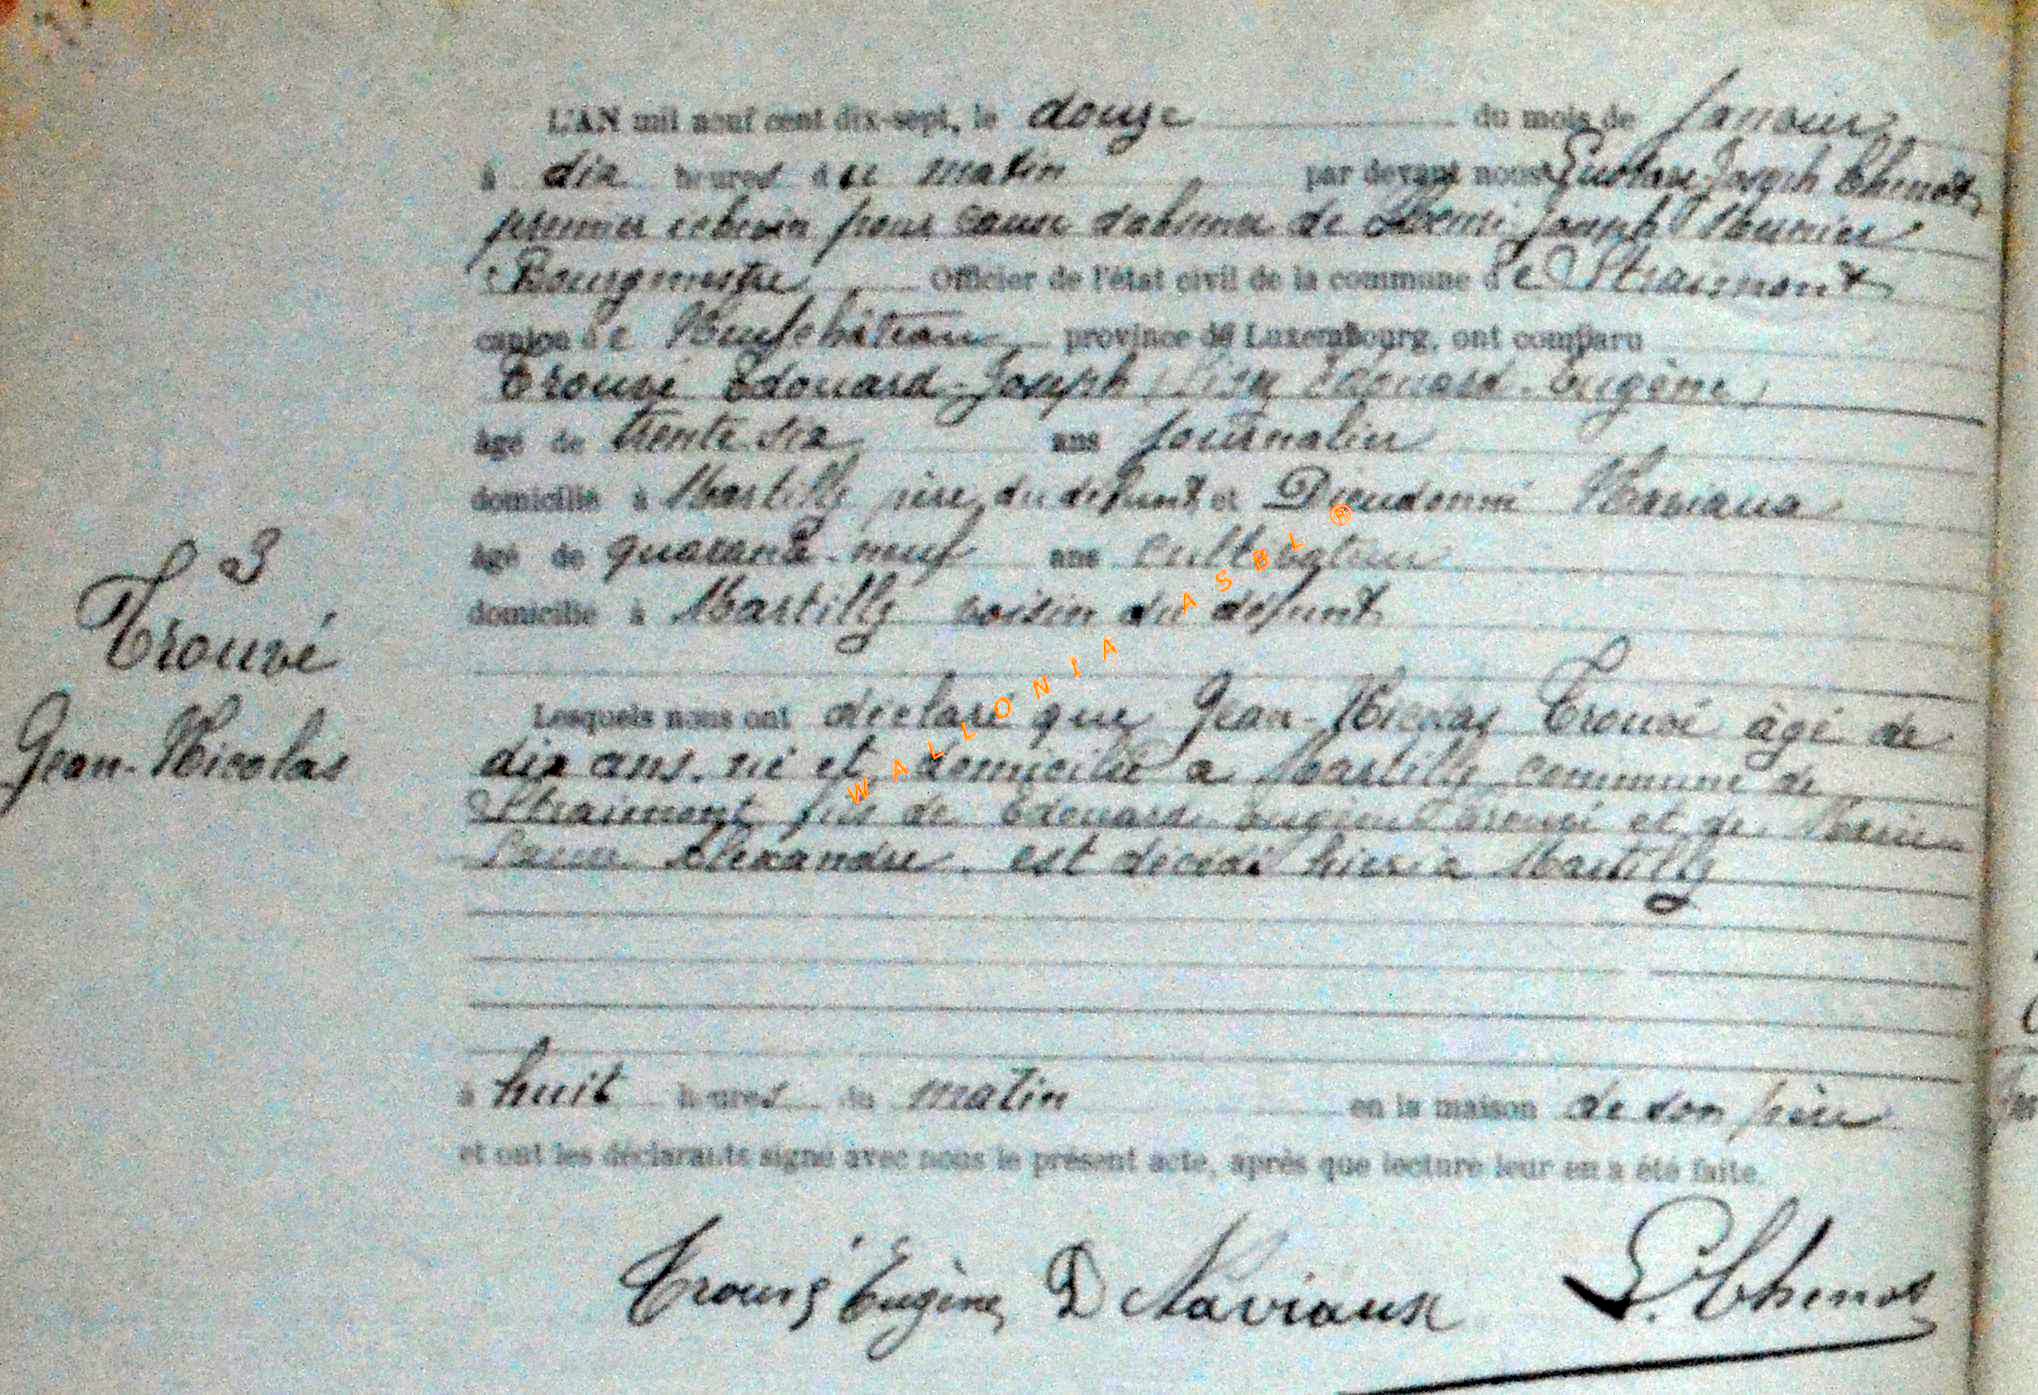 L'AN mil neuf cent dix-sept, le douze du mois de Janvier
à dix heures du matin par devant nous Gustave Joseph Thenot
premier échevin pour cause d'absence de Henri Joseph Meunier
Bourgmestre Officier de l'état civil de la commune de Straimont
canton de Neufchâteau province de Luxembourg, ont comparu
Trouvé Edouard-Joseph Edouard-Eugène
âgé de trente six ans journalier
domicilié à Martilly père du défunt et Dieudonné Naviaux
âgé de quarante-neuf ans cultivateur
domicilié à Martilly voisin du défunt
3
Trouvé
Jean-Nicolas
Lesquels nous ont déclaré que Jean-Nicolas Trouvé âgé de
dix ans, né et domicilié à Martilly commune de
Straimont fils de Edouard Eugène Trouvé et de Marie
Alexandre, est décédé hier à Martilly
à huit heures du matin en la maison de son père
et ont les déclarants signé avec nous le présent acte, après que lecture leur en a été faite.
Trouvé Eugène D Naviaux G. Thenot
WALLONIA ASBL ®